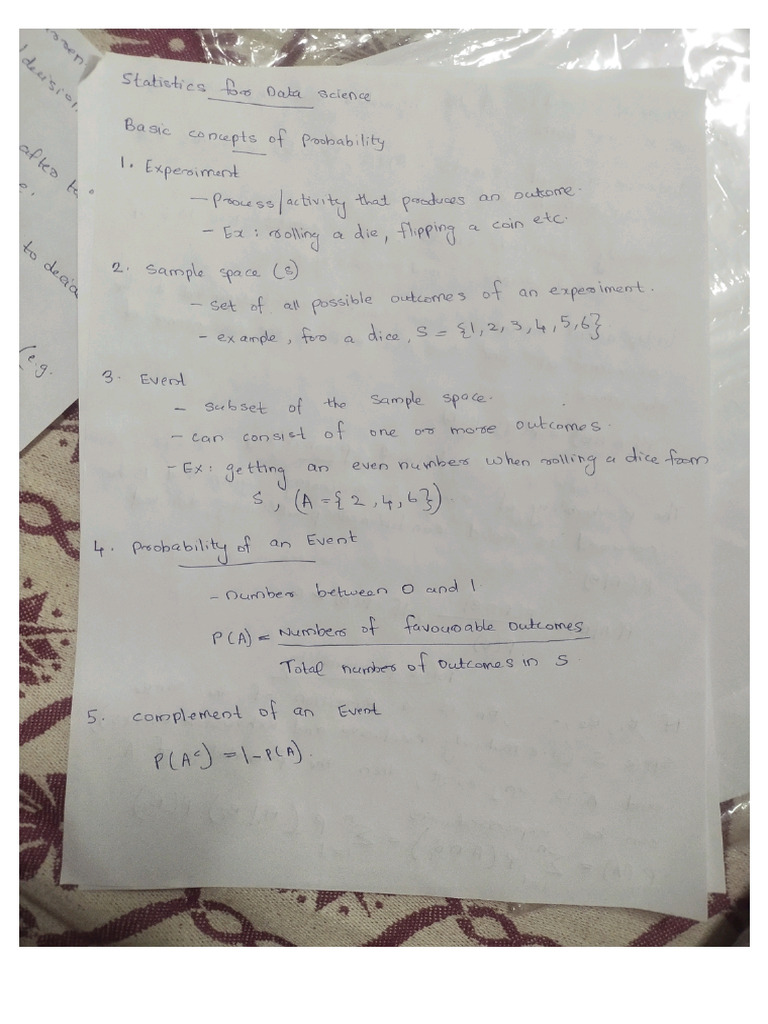 Statistics for Data Science
Basic concepts of Probability
1. Experiment
- Process/activity that produces an outcome.
- Ex: rolling a die, flipping a coin etc.
2. Sample space (S)
- set of all possible outcomes of an experiment.
- example, for a dice, S = {1, 2, 3, 4, 5, 6}
3. Event
- subset of the sample space.
- can consist of one or more outcomes.
- Ex: getting an even number when rolling a dice from
S, (A = {2, 4, 6}).
4. Probability of an Event
- number between 0 and 1.
P(A) = Numbers of favourable outcomes
Total number of outcomes in S
5. complement of an Event
P(Aᶜ) = 1 - P(A).
decision
after
to decid
(e.g.